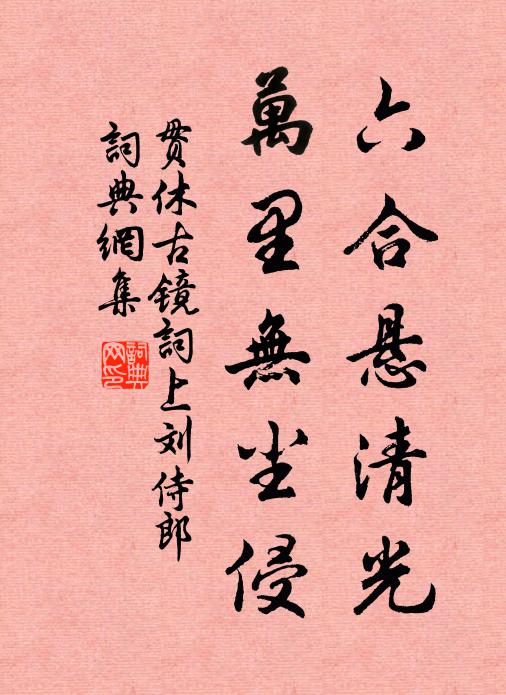 六合悬清光
萬里無尘侵
贯休古镜詞上刘侍郎
詞典網集
詞典
网印